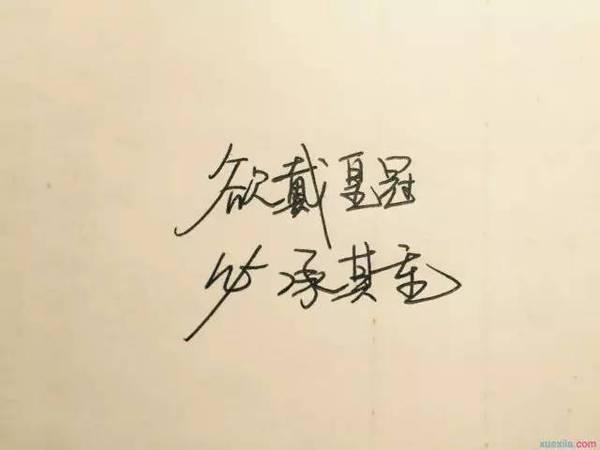 欲戴皇冠
必承其重
xuexila.com